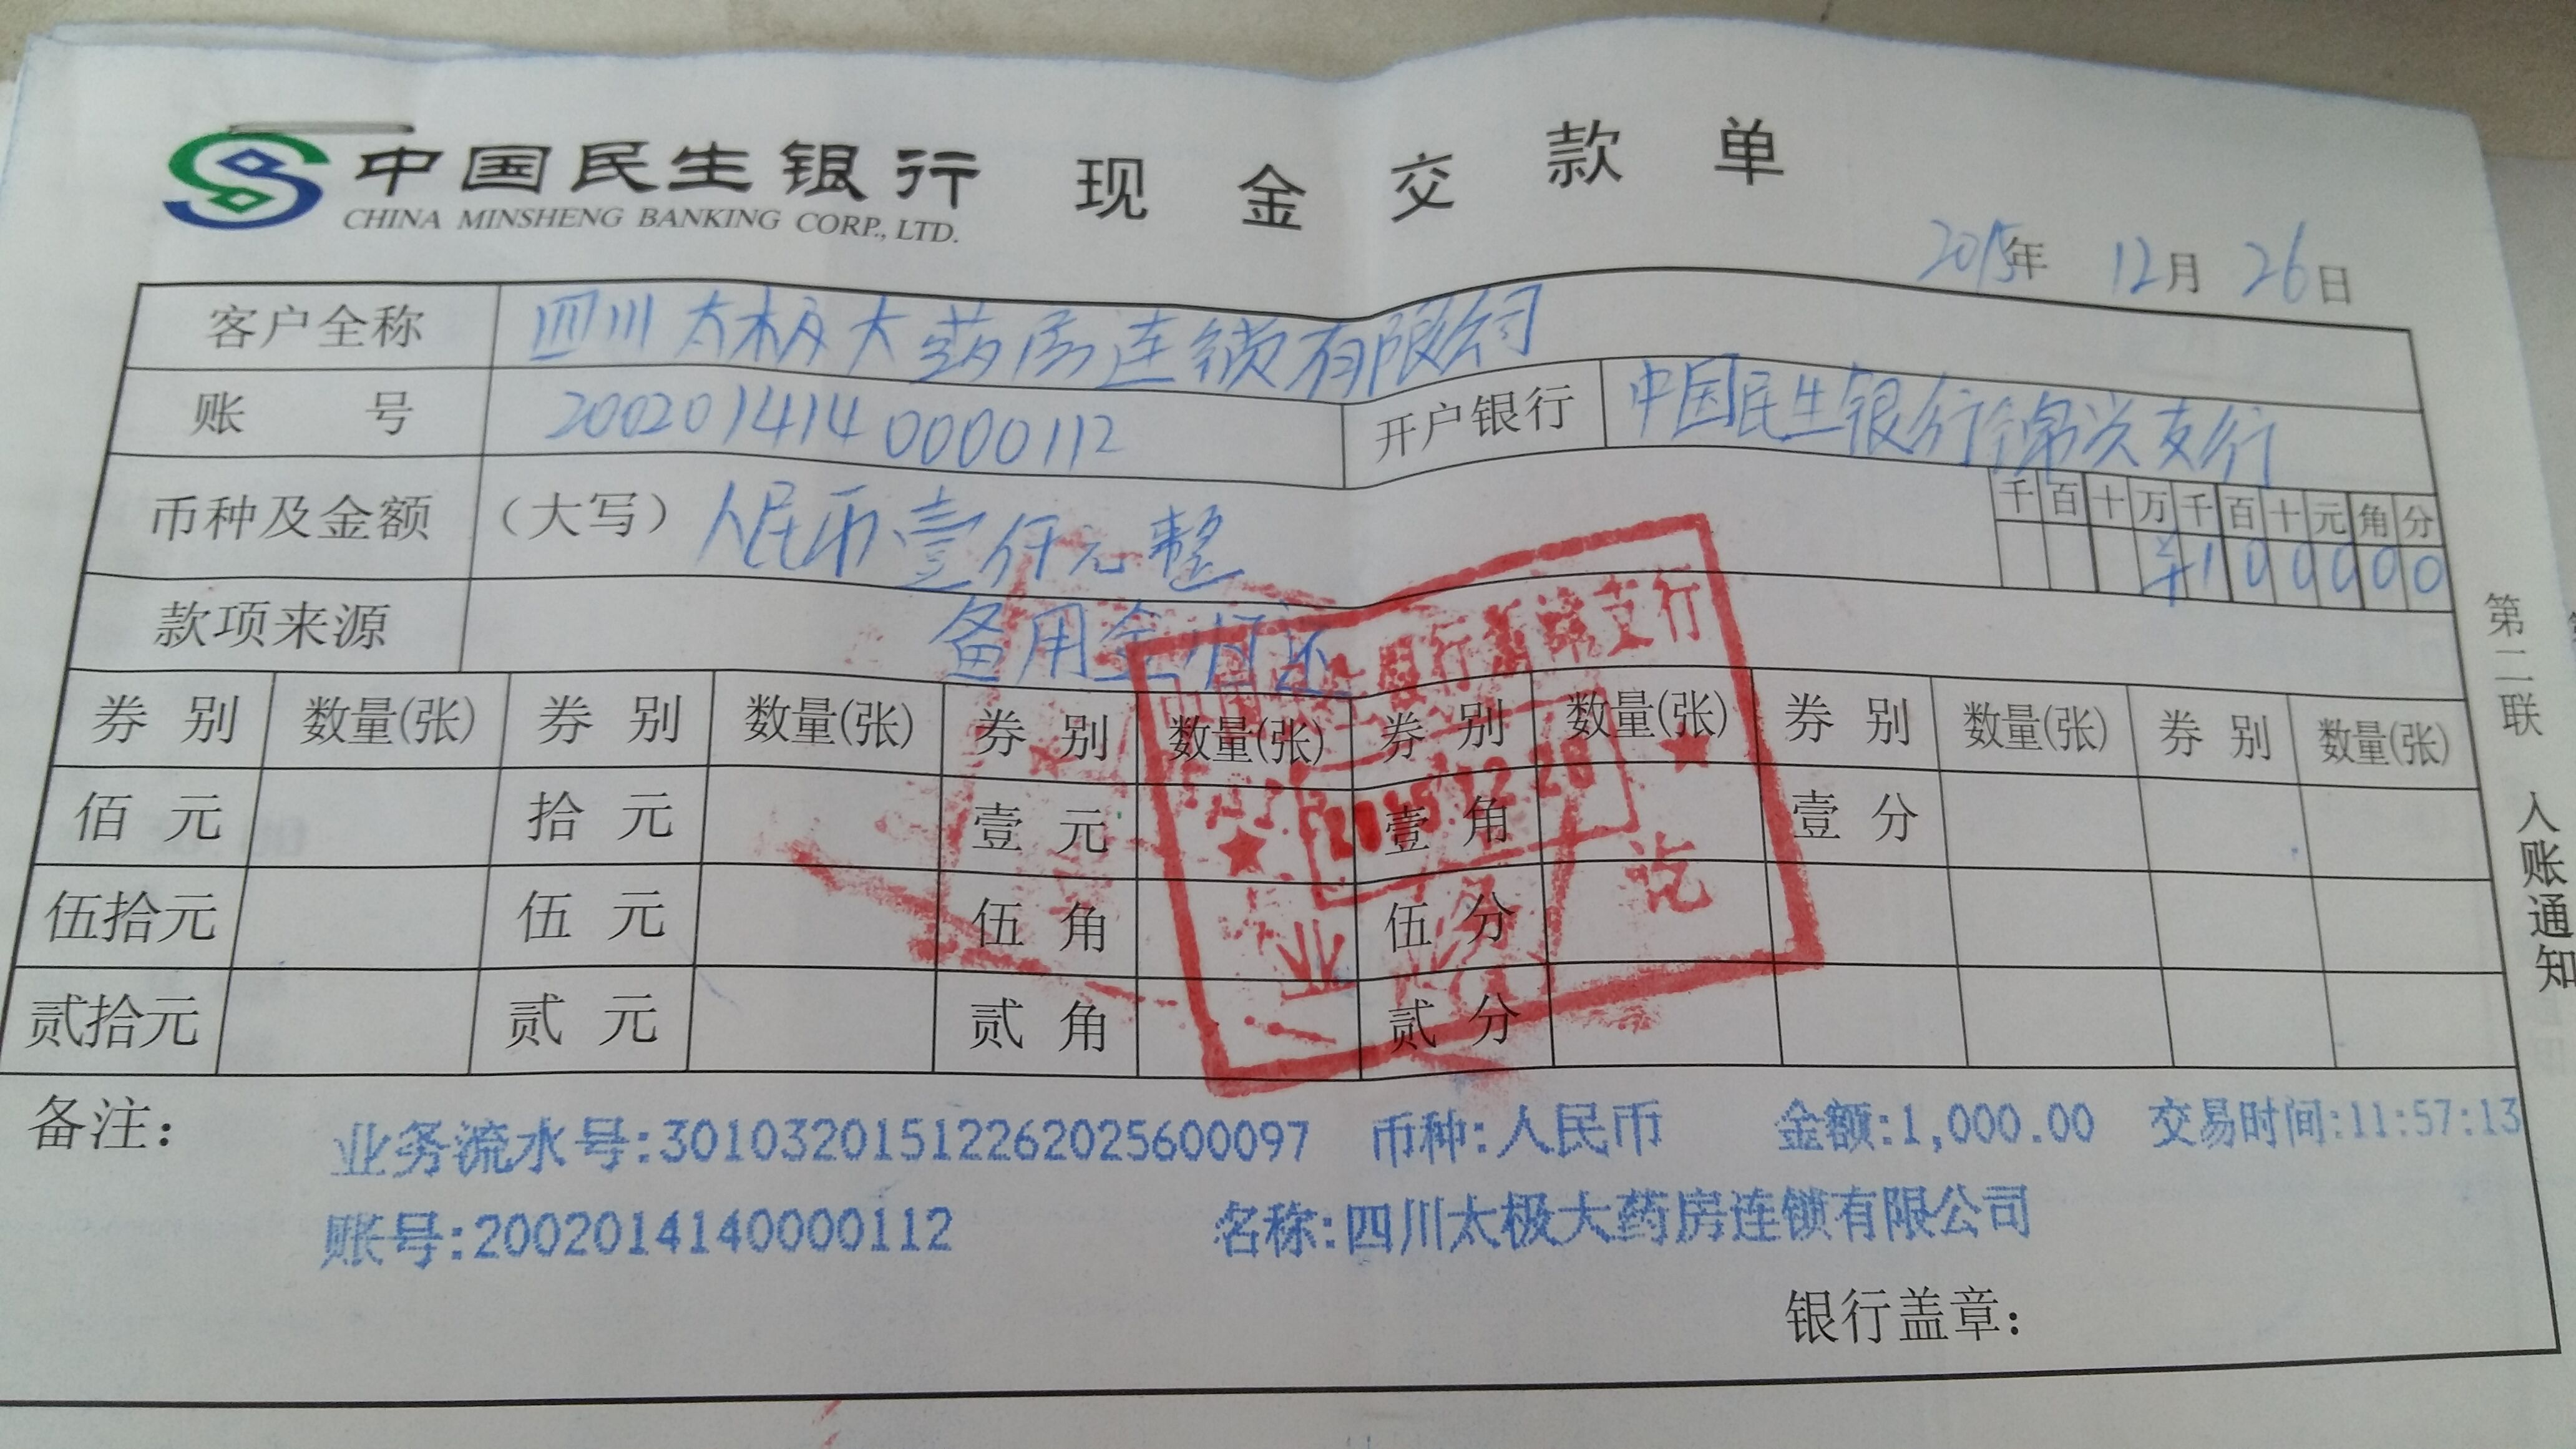 中国民生银行 现金交款单
CHINA MINSHENG BANKING CORP., LTD.
2015年 12月 26日
客户全称 四川太极大药房连锁有限公司
账 号 2002014140000112 开户银行 中国民生银行锦兴支行
币种及金额 (大写) 人民币壹仟元整 千 百 十 万 千 百 十 元 角 分
¥ 1 0 0 0 0 0
款项来源 备用金归还
券 别 数量(张) 券 别 数量(张) 券 别 数量(张) 券 别 数量(张) 券 别 数量(张) 券 别 数量(张)
佰 元 拾 元 壹 元 壹 角 壹 分
伍拾元 伍 元 伍 角 伍 分
贰拾元 贰 元 贰 角 贰 分
支行
业 讫
第二联 入账通知
备注:
业务流水号:3010320151226202560​0097 币种:人民币 金额:1,000.00 交易时间:11:57:13
账号:2002014140000112 名称:四川太极大药房连锁有限公司
银行盖章: